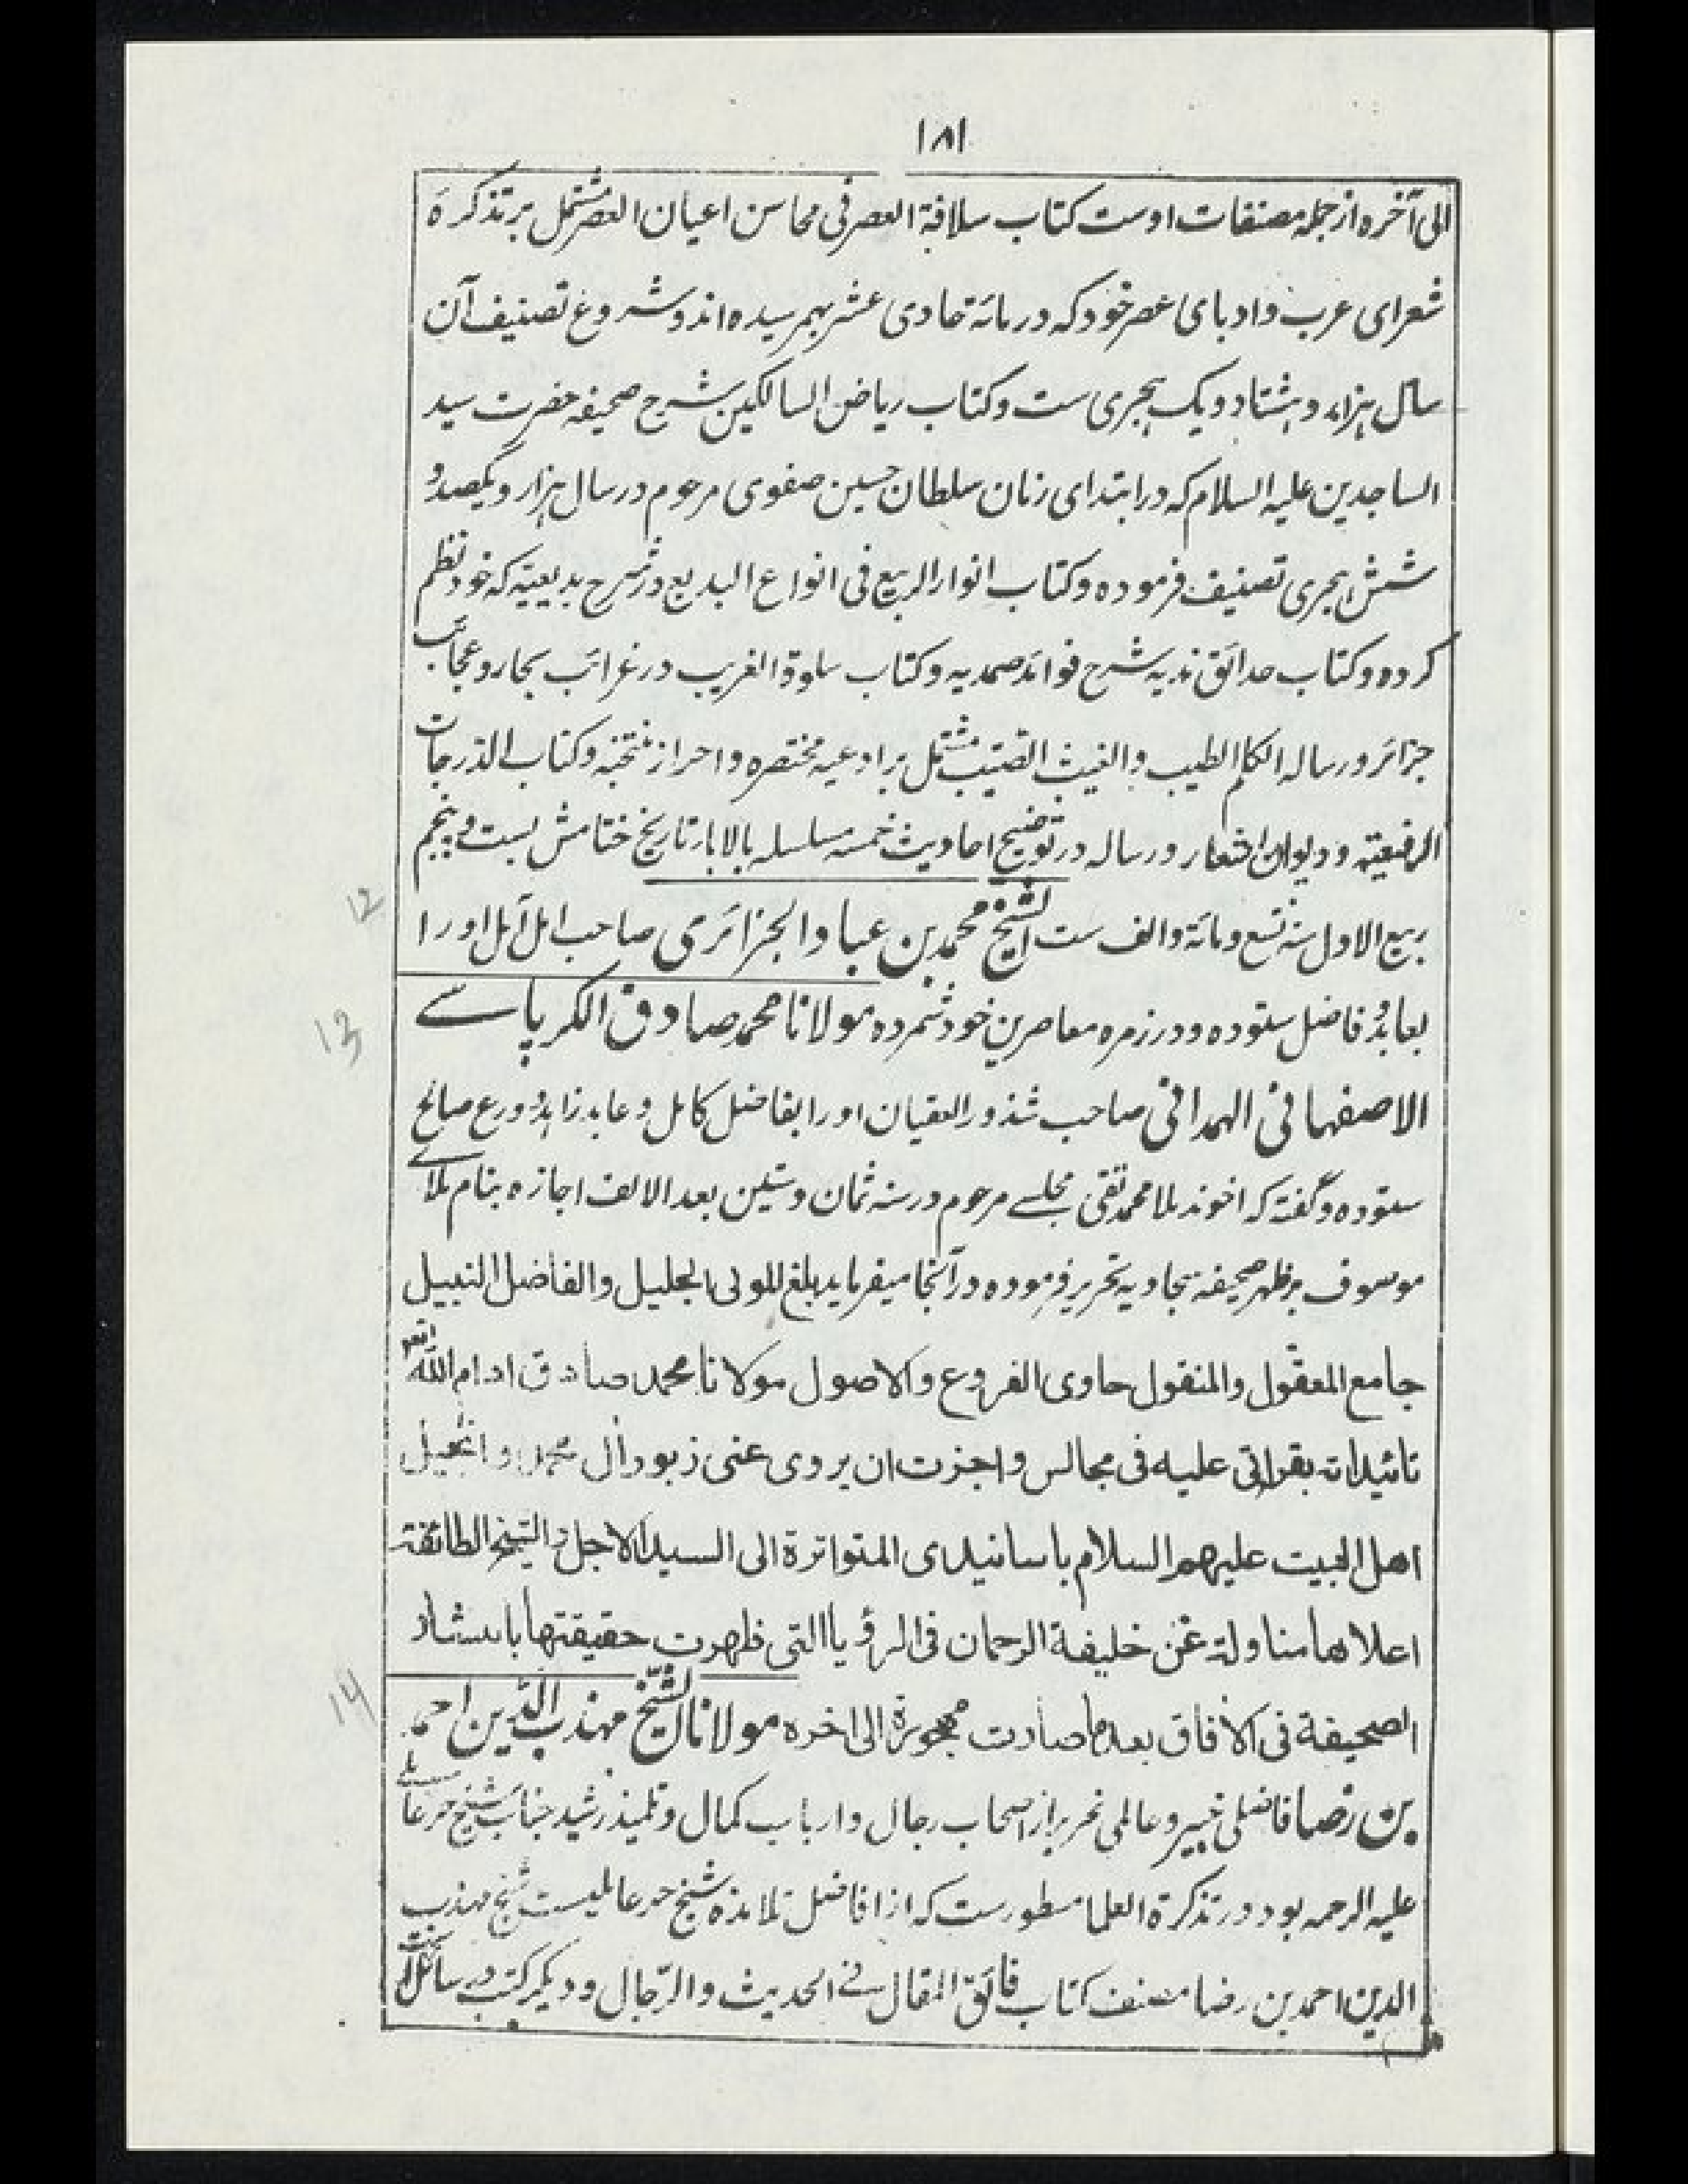 ١٨١
الی آخره از جمله مصنفات اوست کتاب سلافة العصر فی محاسن اعیان العصر مشتمل بر تذکرهٔ
شعرای عرب و ادبای عصر خود که در مائة حادی عشر بهم رسیده اند و شروع تصنیف آن
سال هزار و هشتاد و یک هجری ست و کتاب ریاض السالکین شرح صحیفه حضرت سید
الساجدین علیه السلام که در ابتدای زمان سلطان حسین صفوی مرحوم در سال هزار و یکصد و
شش هجری تصنیف فرموده و کتاب انوار الربیع فی انواع البدیع در شرح بدیعیة که خود نظم
کرده و کتاب حدائق ندیه شرح فوائد صمدیه و کتاب سلوة الغریب در غرائب بحار و عجائب
جزائر و رساله الکلم الطیب و الغیث الصیب مشتمل بر ادعیه مختصره و احراز منتخبه و کتاب الدرجات
الرفیعة و دیوان اشعار و رساله در توضیح احادیث خمسه مسلسله بالابا تاریخ ختامش بست و پنجم
12
ربیع الاول سنه تسع و مائة و الف ست الشیخ محمد بن عباد الجزائری صاحب امل آمل او را
13
بعابد و فاضل ستوده و در زمره معاصرین خود شمرده مولانا محمد صادق الکرباسے
الاصفهانی الهمدانی صاحب شذور العقیان او را بفاضل کامل و عابد زاهد و ورع صالح
ستوده و گفته که اخوند ملا محمد تقی مجلسے مرحوم در سنه ثمان و ستین بعد الالف اجازه بنام ملاے
موسوف بر ظهر صحیفه سجادیه تحریر فرموده در آنجا میفرماید بلغ المولی الجلیل والفاضل النبیل
جامع المعقول والمنقول حاوی الفروع والاصول مولانا محمد صادق ادام الله
تائیداته بقراتی علیه فی مجالس واجزت ان یروی عنی زبور آل محمد و انجیل
اهل البیت علیهم السلام باسانیدی المتواترة الی السید الاجل والشیخ الطائفة
اعلاها مناولة عن خلیفة الرحمان فی الرؤیا التی ظهرت حقیقتها بانتشار
14
الصحیفة فی الآفاق بعد ما صارت مهجورة الی اخره مولانا الشیخ مهذب الدین احمد
بن رضا فاضلی خبیر و عالمی نحریر از اصحاب رجال و ارباب کمال و تلمیذ رشید جناب شیخ حر عاملے
علیه الرحمه بود در تذکرة العلما مسطور ست که از افاضل تلامذه شیخ حر عاملیست شیخ مهذب
الدین احمد بن رضا مصنف کتاب فائق المقال فے الحدیث و الرجال و دیگر کتب و رسائل